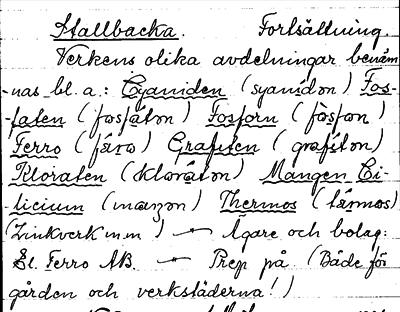 Stallbacka. Fortsättning.
Verkens olika avdelningar benäm
-nas bl. a.: Cyaniden (syanídən) Fos-
-faten (fosfátən) Fosforn (fòsfən)
Ferro (färo) Grafiten (grafítən)
Kloraten (klorátən) Mangan Ci-
-licium (maŋən) Thermos (tärmos)
(Zinkverk m m) — Ägare och bolag:
El. Ferro AB. — Prep på (Både för
gården och verkstäderna!)